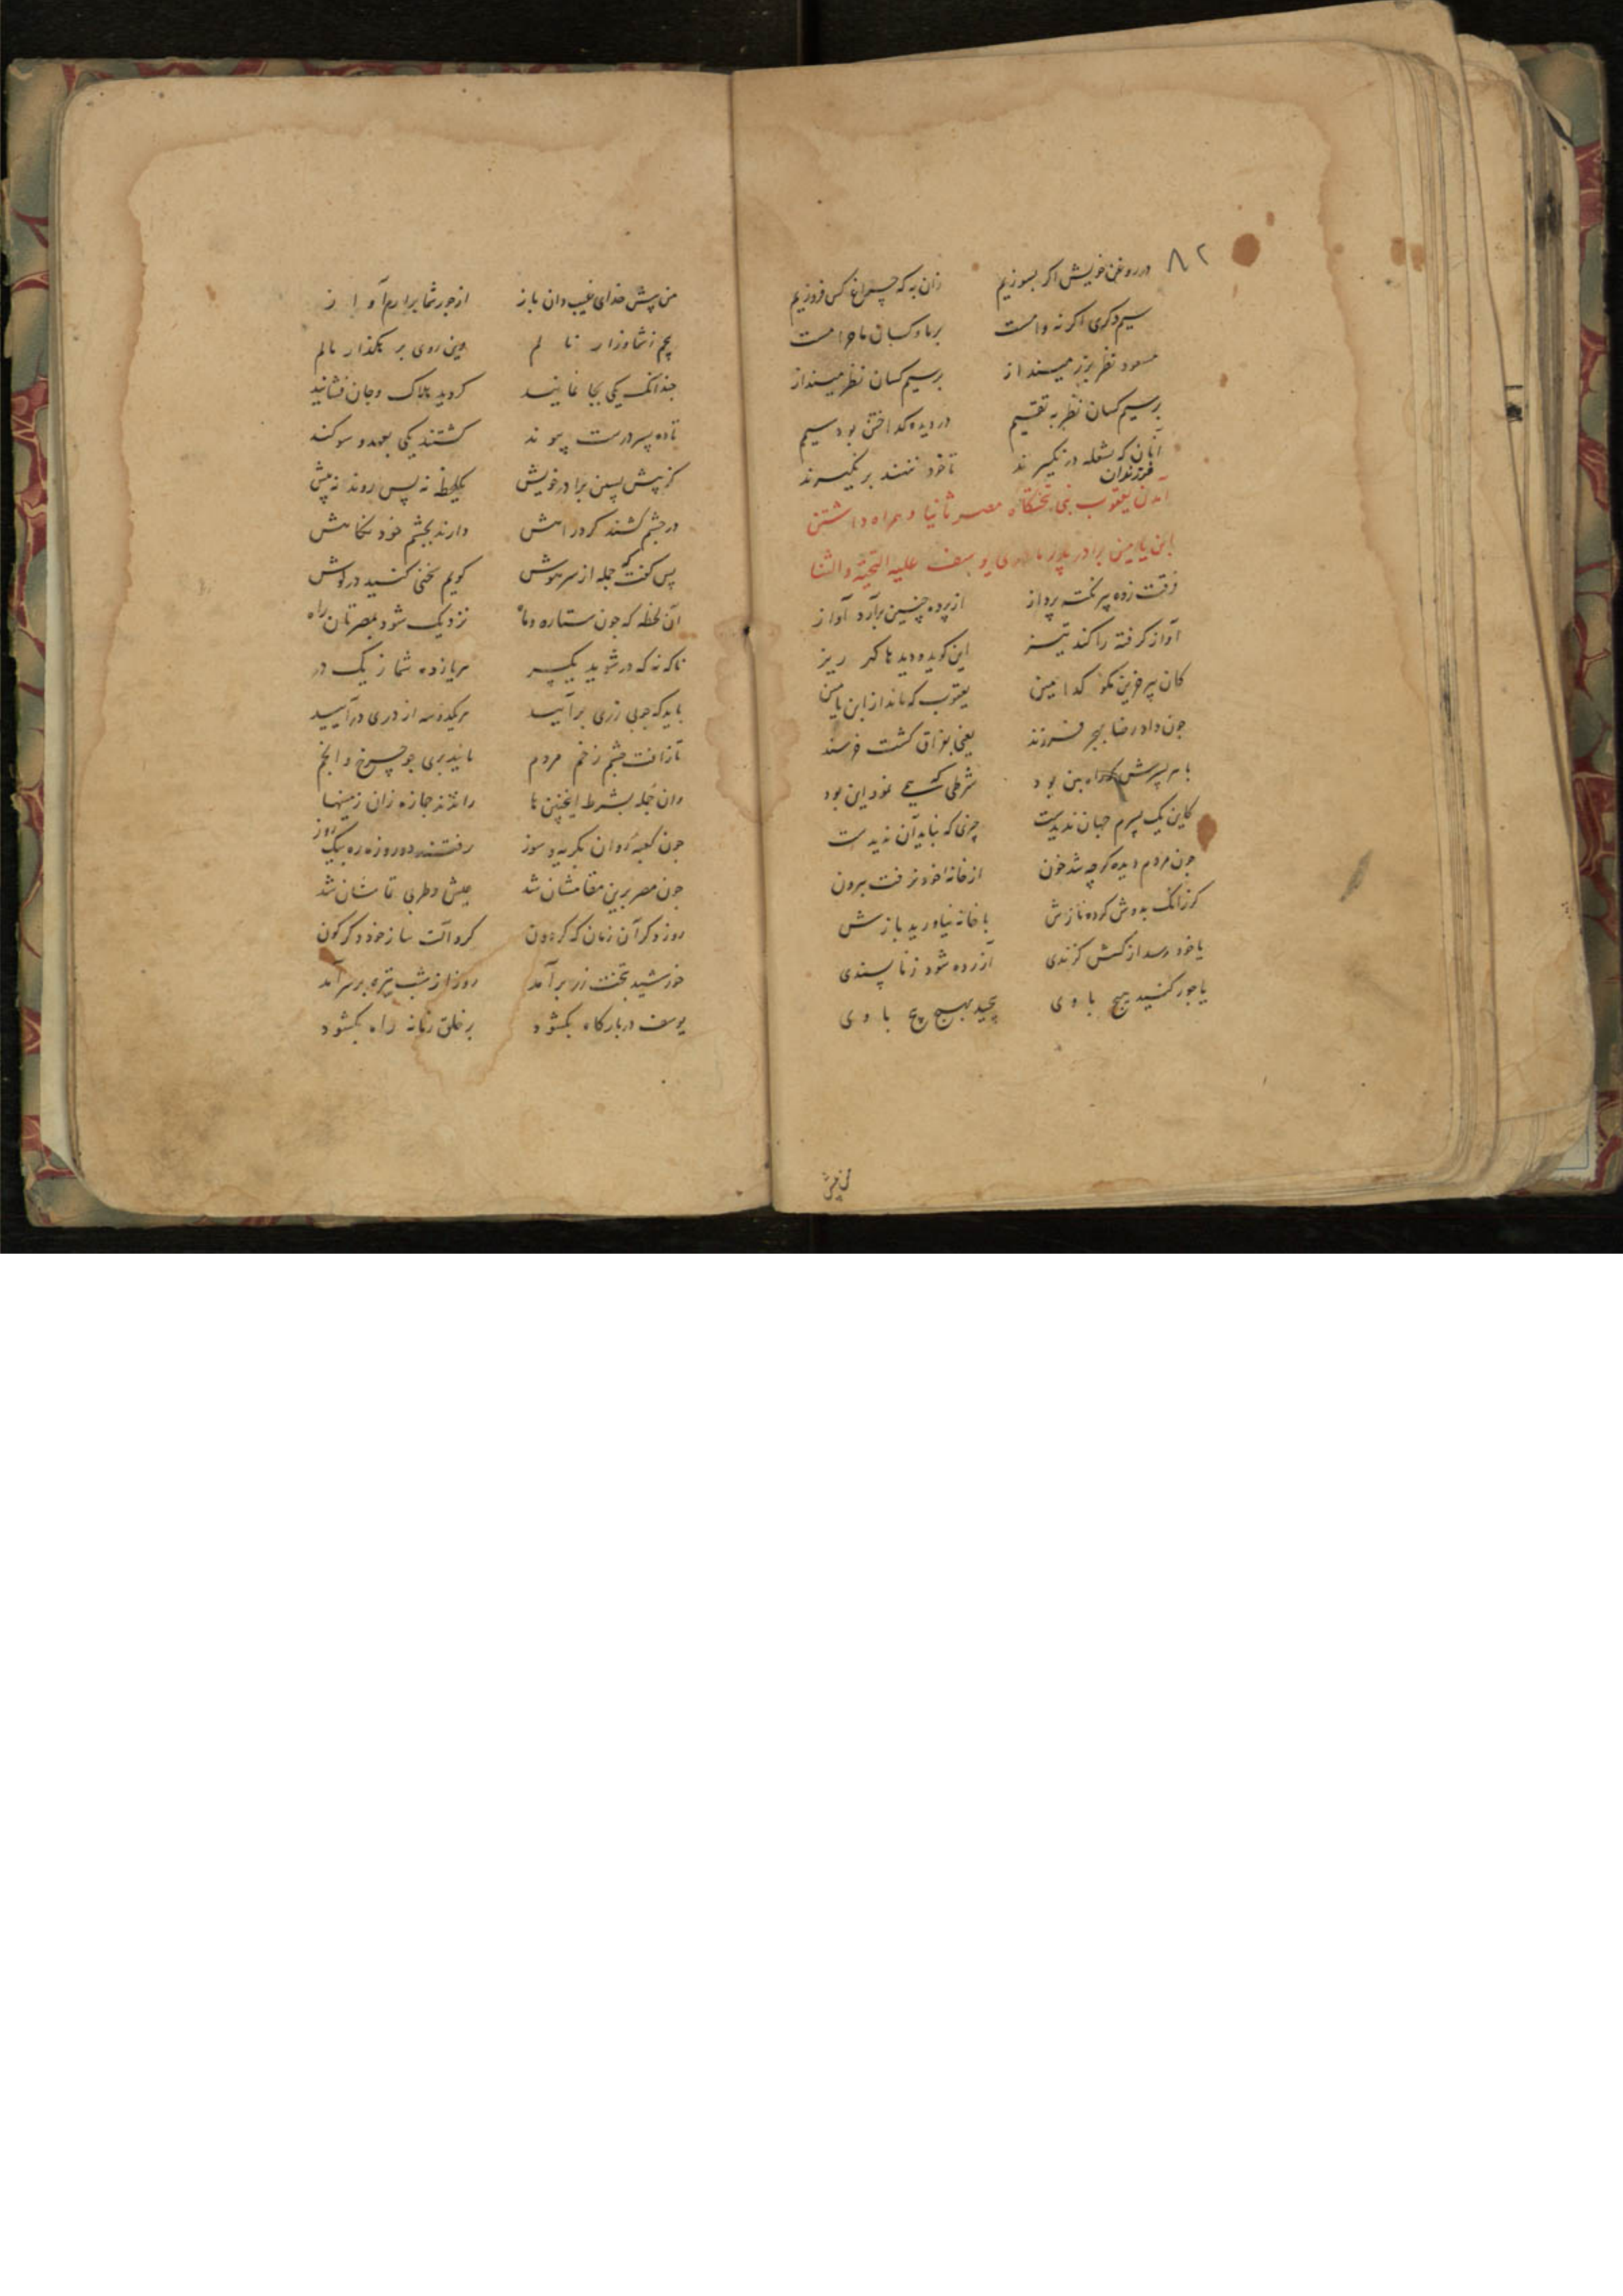 در روغن خویش اگر بسوزیم زان به که چراغ کس فروزیم
۸۲
سیم دگری اگر نه وامست بر ما و کسان ما حرامست
مسعود نظر بزر مینداز بر سیم کسان نظر مینداز
بر سیم کسان نظر به تقسیم در دیده گداختن بود سیم
آنان که بشعله در نگیرند تا خود ننهند بر نگیرند
فرزندان
آمدن یعقوب نبی بتختگاه مصر ثانیا و همراه داشتن
ابن یامین برادر یوسف علیه التحیة والثنا
فرقت زده پیر نکته پرداز از پرده چنین برآرد آواز
آواز گرفته را کند تیز این گوید و دیدها گهر ریز
کان پیر حزین نکو یعقوب که ماند از ابن یامین
چون داد رضا بهجر فرزند یعنی بفراق گشت خرسند
با هر پسرش که راه بین بود شرطی که همی نمود این بود
کاین یک پسرم جهان ندیدست چیزی که نباید آن ندیدست
چون مردم دیده گرچه شد خون از خانه خود نرفت بیرون
گر زانک بدوش کرده نازش با خانه نیاورید بازش
یا خود رسد از کسش گزندی آزرده شود ز ناپسندی
یا جور کنید هیچ با وی پیچید بهیچ پیچ با وی
من پیش
من پیش خدای غیب دان باز از جور شما برارم آواز
پیچم ز شما و زار نالم وین روی بر بگذار مالم
چندانک یکی بجا نمانید گردید هلاک و جان فشانید
تا ده پسر درست پیوند گشتند یکی بعهد و سوگند
کز پیش پسین برادر خویش یکلحظه نه پس روند نه پیش
در چشم کشند گرد راهش دارند بچشم خود نگاهش
پس گفت که جمله از سر هوش گویم سخنی کنید در گوش
آن لحظه که چون ستاره و ماه نزدیک شود بمصرتان راه
ناگه نه که در شوید یکسر هر یازده شما ز یک در
باید که چو بی زری برآیید هر یکدوسه از دری درآیید
تا زافت چشم زخم مردم مانید بری چو چرخ و انجم
وان جمله بشرط اینچنین ها راندند جمازه زان زمینها
چون کعبه روان بگریه و سوز رفتند دو روزه ره بیک روز
چون مصر برین مقامشان شد عیش و طربی تمامشان شد
روز دگر آن زمان که گردون کرد آلت ساز خود دگرگون
خورشید بتخت زر برآمد روز از شب تیره بر سر آمد
یوسف در بارگاه بگشود بر خلق زمانه راه بگشود